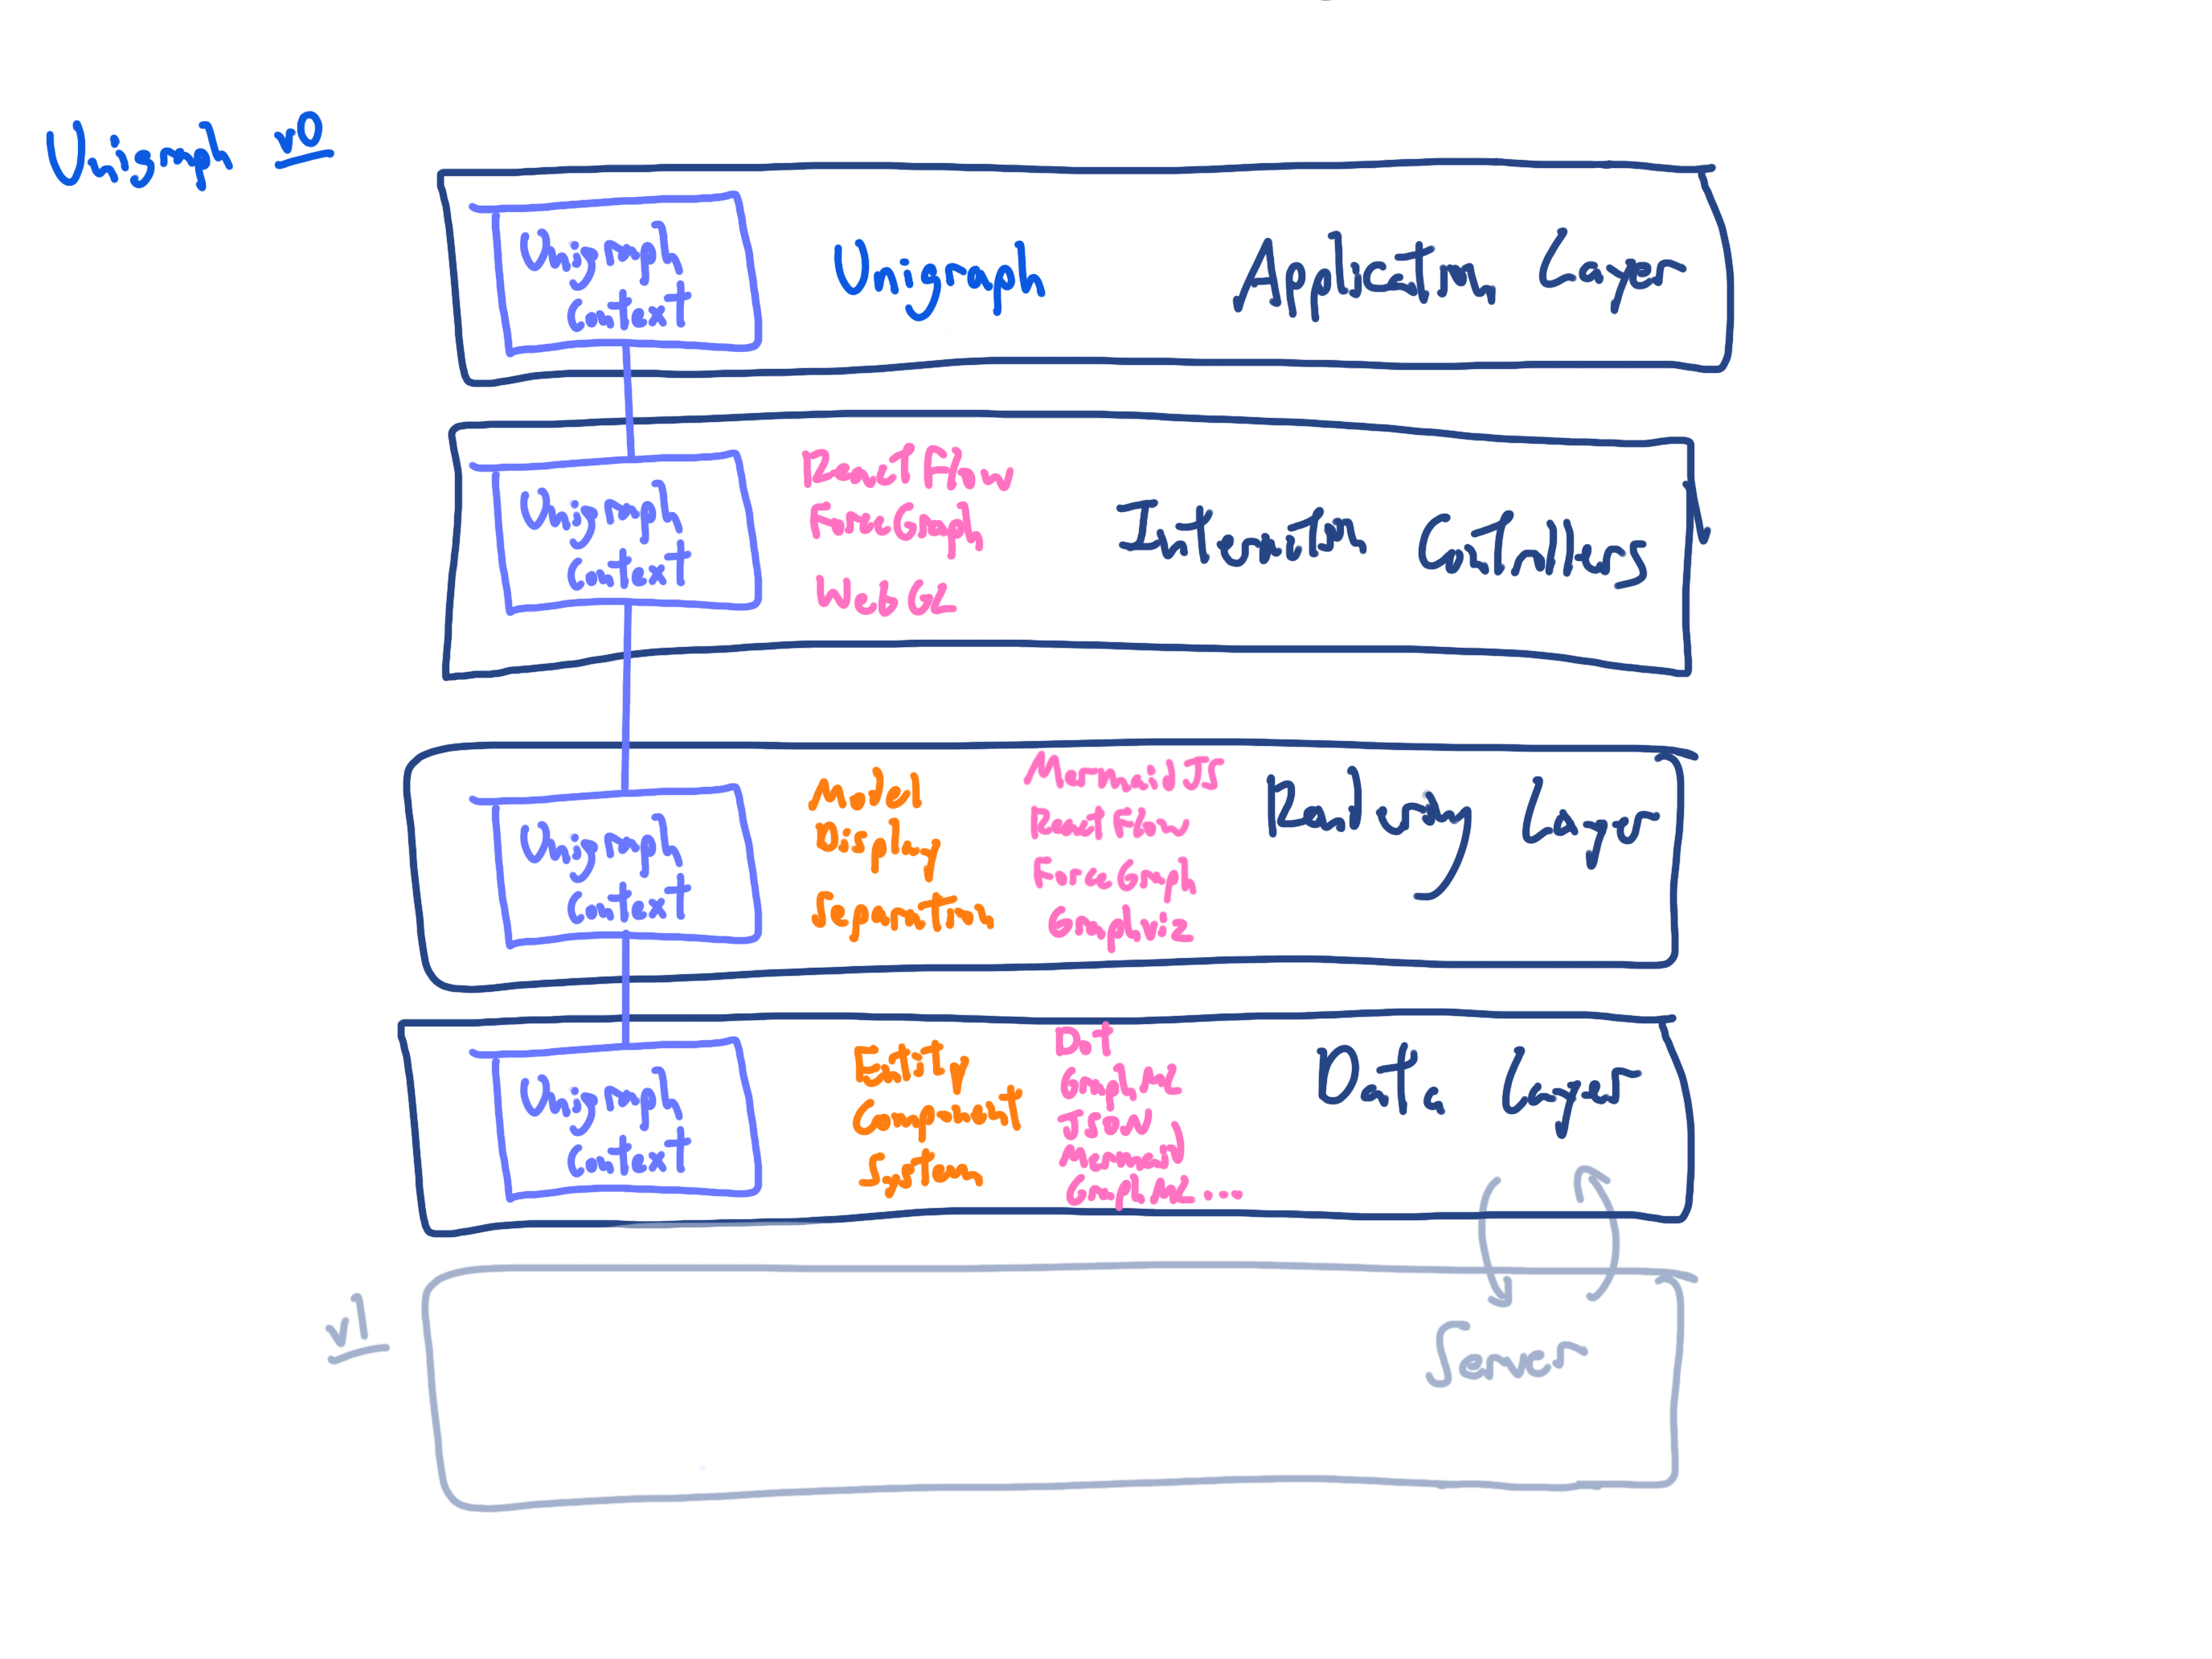 Unigraph v0
Unigraph
Context
Unigraph
Application Layer
Unigraph
Context
React Flow
ForceGraph
WebGL
Interaction Controllers
Unigraph
Context
Model
Display
Separation
Mermaid JS
React Flow
ForceGraph
Graphviz
Rendering Layer
Unigraph
Context
Entity
Component
System
Dot
JSON
Mermaid
Data Layer
v1
Server